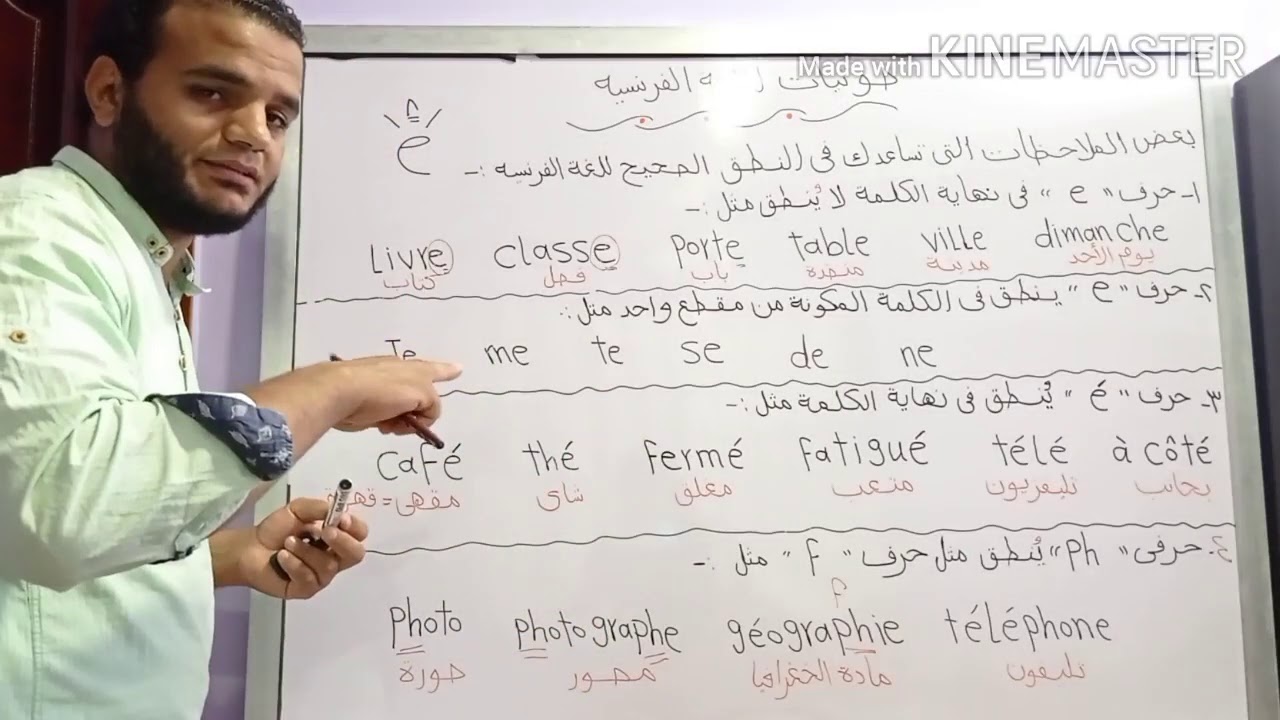 Made with KINEMASTER
صوتيات الفرنسية
é
بعض الملاحظات التى تساعدك فى النطق الصحيح للغة الفرنسية :-
١- حرف "e" فى نهاية الكلمة لا يُنطق مثل :-
Livre classe porte table ville dimanche
كتاب فصل باب منضدة مدينة يوم الأحد
٢- حرف "e" ينطق فى الكلمة المكونة من مقطع واحد مثل :-
Te me te se de ne
٣- حرف "é" يُنطق فى نهاية الكلمة مثل :-
Café thé fermé fatigué télé à côté
مقهى = شاى مغلق متعب تليفزيون بجانب
٤- حرفى "ph" يُنطق مثل حرف "f" مثل :-
f
photo photographe géographie téléphone
صورة مصور مادة الجغرافيا تليفون